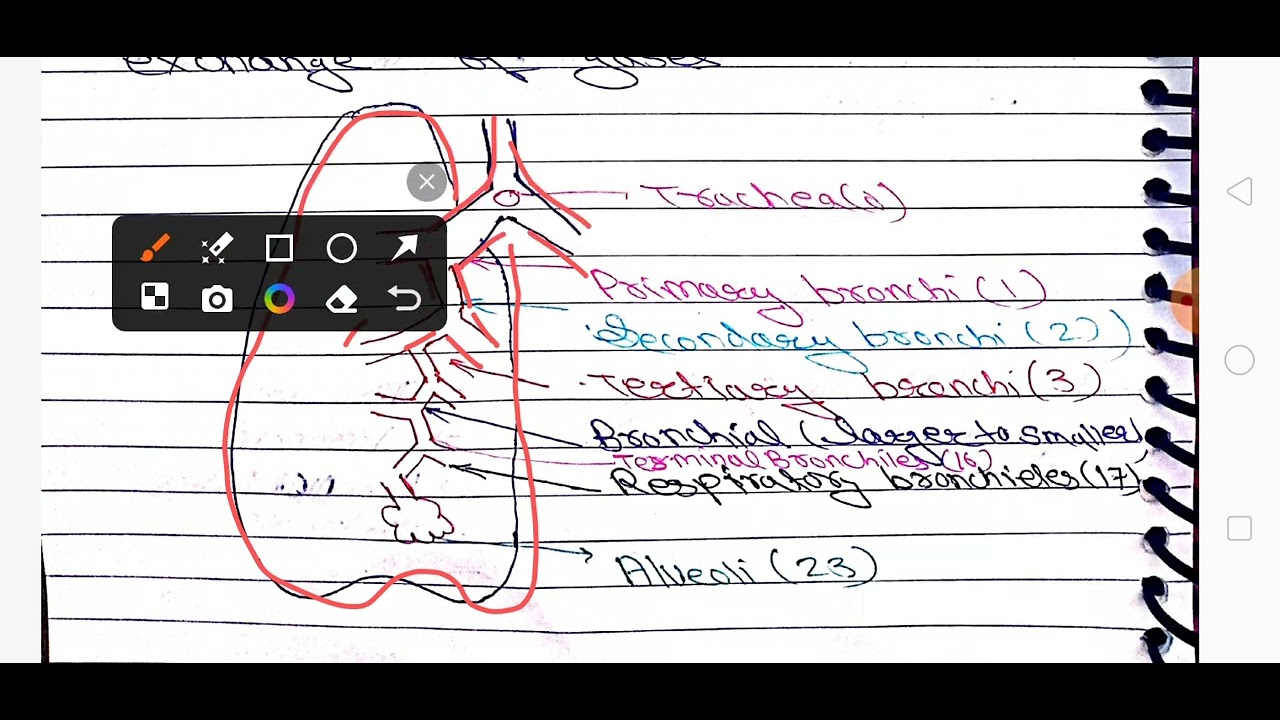 exchange of gases
Trachea(0)
Primary bronchi (1)
Secondary bronchi (2)
Tertiary bronchi (3)
Bronchial (larger to smaller)
Terminal Bronchiles (16)
Respiratory bronchieles (17)
Alveoli (23)